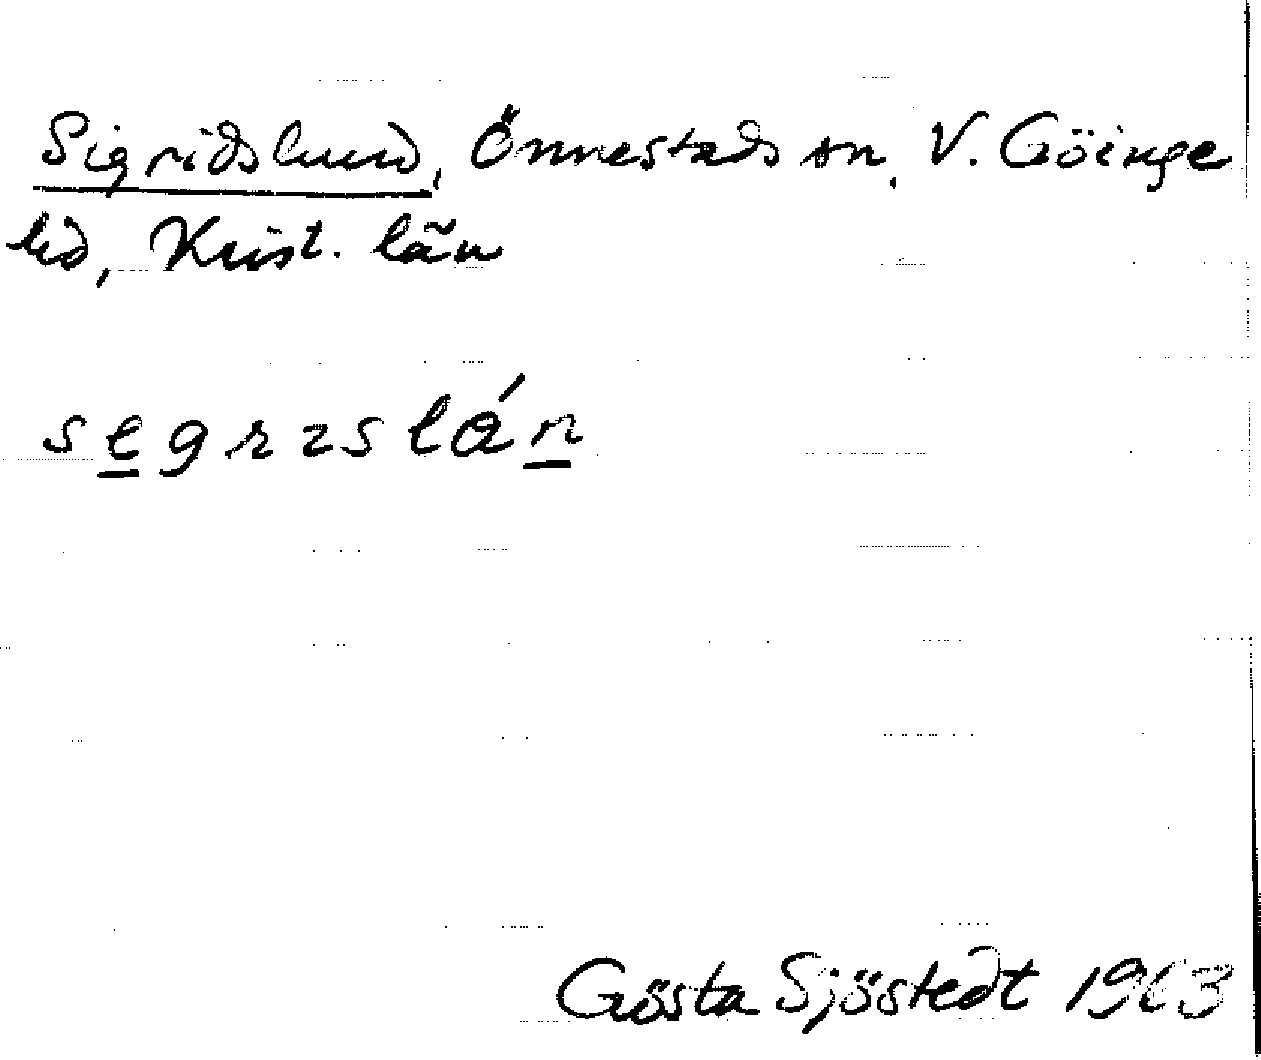 Sigridslund, Önnestads sn, V. Göinge
hd, Krist. län
segrɪslán
Gösta Sjöstedt 1963